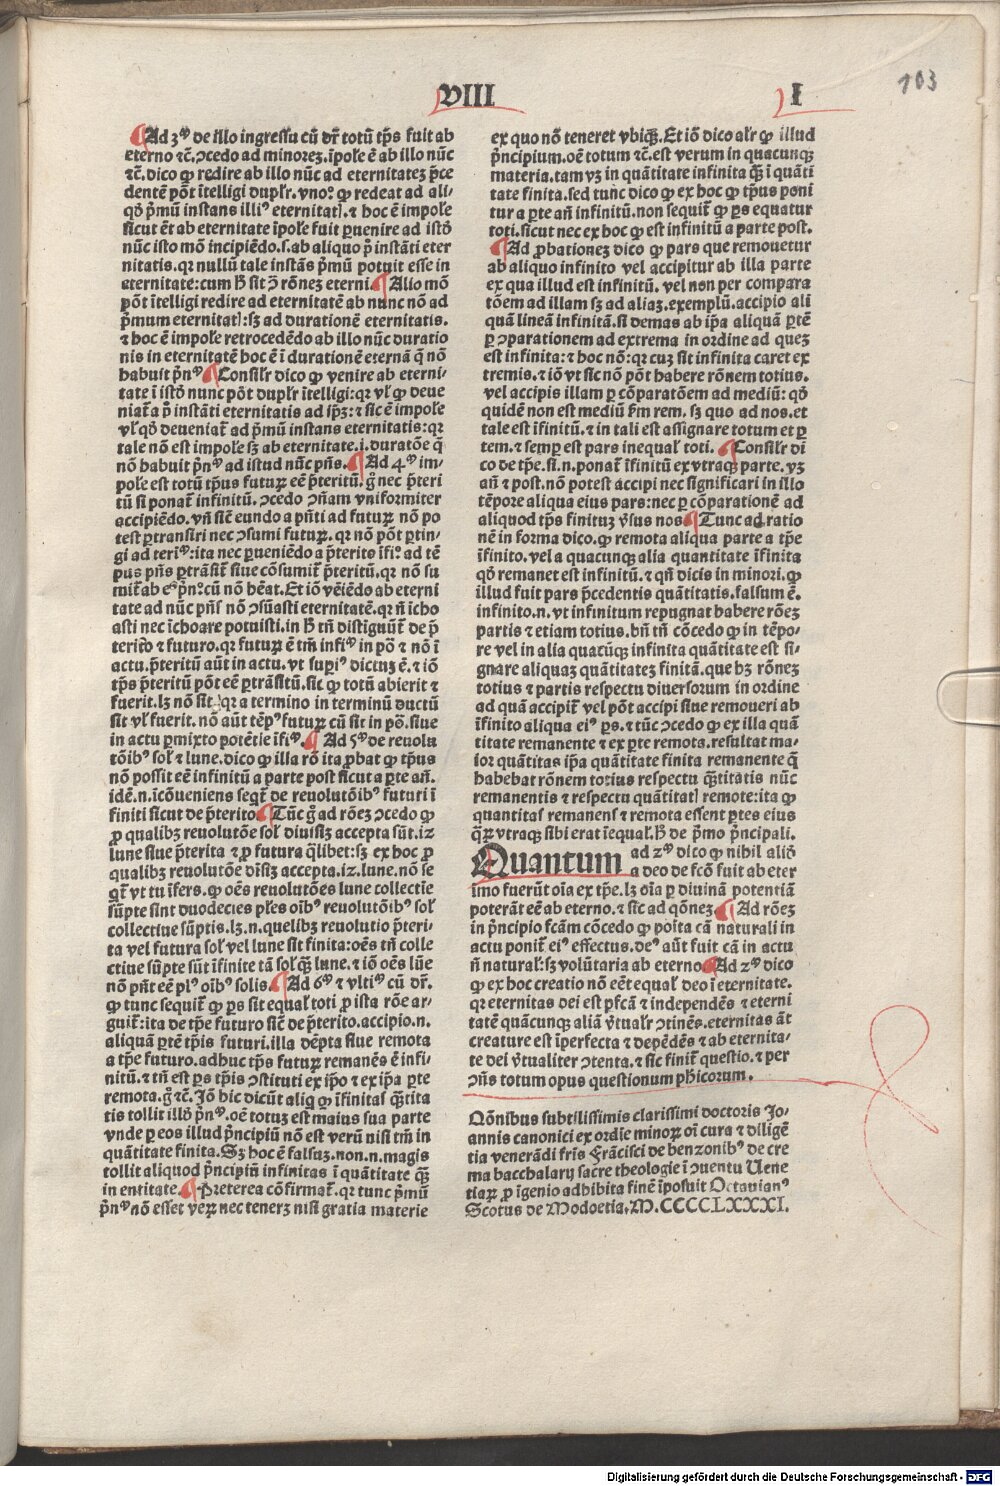 VIII
I
103
¶Ad 3ᵐ de illo ingressu cū dr̄ totū tp̄s fuit ab
eterno ⁊c̄. ↄcedo ad minorez. īpole ē ab illo nūc
⁊c̄. dico ꝙ redire ab illo nūc ad eternitatez p̄ce
dentē pōt ītelligi duplr̄. vnoꝰ. ꝙ redeat ad ali⸗
qđ p̄mū instans illiꝰ eternitatꝭ. ⁊ hoc ē impole
sicut ēt ab eternitate īpole fuit ꝑuenire ad istđ
nūc isto mō incipiēdo. s. ab aliquo p̄ instāti eter
nitatis. qꝛ nullū tale instās p̄mū potuit esse in
eternitate: cum ħ sit ↄ̄ rōnez eterni. ¶Alio mō
pōt ītelligi redire ad eternitatē ab nunc nō ad
p̄mum eternitatꝭ: sꝫ ad durationē eternitatis.
⁊ hoc ē impole retrocedēdo ab illo nūc duratio
nis in eternitatē hoc ē ī durationē eternā q̄ nō
habuit p̄nᵐ ¶Consilr̄ dico ꝙ venire ab eterni⸗
tate ī istđ nunc pōt duplr̄ ītelligi: qꝛ vl̓ ꝙ deue
niat̄ a p̄ instāti eternitatis ad ip̄ꝫ: ⁊ sic ē impole
vl̓ qđ deueniat̄ ad p̄mū instans eternitatis: qꝛ
tale nō est impole sꝫ ab eternitate. i. duratōe q̄
nō habuit p̄nᵐ ad istud nūc pn̄s. ¶Ad 4ᵐ im⸗
pole est totū tp̄us futuꝝ eē p̄teritū. g̊ nec p̄teri
tū si ponat̄ infinitū. ↄcedo ↄn̄am vniformiter
accipiēdo. vn̄ sic̄ eundo a pn̄ti ad futuꝝ nō po
test ꝑtransiri nec ↄsumi futuꝝ. qꝛ nō pōt ꝑtin⸗
gi ad teriᵐ: ita nec ꝑueniēdo a p̄terito īfiᵒ. ad tē
pus pn̄s ꝑtrāsit̄ siue cōsumit̄ p̄teritū. qꝛ nō su
mit̄ ab eᵒ pⁿᵒ: cū nō hēat. Et iō vēiēdo ab eterni
tate ad nūc pn̄s nō ↄsūasti eternitatē. qꝛ n̄ īcho
asti nec īchoare potuisti. in ħ tn̄ distīguūt̄ de p̄
terito ⁊ futuro. qꝛ futuꝝ ē tm̄ infiᵐ in pō ⁊ nō ī
actu. p̄teritū aūt in actu. vt supiꝰ dictuꝫ ē. ⁊ iō
tp̄s p̄teritū pōt eē ꝑtrāsitū. sic ꝙ totū abierit ⁊
fuerit. lꝫ nō sit qꝛ a termino in terminū ductū
sit vl̓ fuerit. nō aūt tēpꝰ futuꝝ cū sit in pō. siue
in actu ꝑmixto potētie īfiᵐ. ¶Ad 5ᵐ de reuolu
tōibꝰ sol̓ ⁊ lune. dico ꝙ illa rō ita ꝓbat ꝙ tp̄us
nō possit eē infinitū a parte post sicut a ꝑte an̄.
idē. n. īcōueniens seqt̄ de reuolutōibꝰ futuri ī
finiti sicut de p̄terito. ¶Tūc g̊ ad rōeꝫ ↄcedo ꝙ
ꝓ qualibꝫ reuolutōe sol̓ diuisiꝫ accepta sūt. iz
lune siue p̄terita ⁊ ꝓ futura q̄libet: sꝫ ex hoc ꝓ
qualibꝫ reuolutōe dīsiꝫ accepta. iz. lune. nō se
qt̄ vt tu īfers. ꝙ oēs reuolutōes lune collectie
sūpte sint duodecies pl̄es oībꝰ reuolutōibꝰ sol̓
collectiue sūptis. lꝫ. n. quelibꝫ reuolutio p̄teri⸗
ta vel futura sol̓ vel lune sit finita: oēs tn̄ colle
ctiue sūpte sūt īfinite tā sol̓ qꝫ lune. ⁊ iō oēs lūe
nō pn̄t eē plꝰ oībꝰ solis. ¶Ad 6ᵐ ⁊ vltiᵐ cū dr̄.
ꝙ tunc sequit̄ ꝙ ps̄ sit equal̓ toti ꝓ ista rōe ar⸗
guit̄: ita de tp̄e futuro sic̄ de p̄terito. accipio. n.
aliquā ꝑtē tp̄is futuri. illa dēpta siue remota
a tp̄e futuro. adhuc tp̄s futuꝝ remanēs ē infi⸗
nitū. ⁊ tn̄ est ps̄ tp̄is ↄstituti ex ip̄o ⁊ ex ip̄a ꝑte
remota. g̊ ⁊c̄. Iō hic dicūt aliq ꝙ īfinitas q̄tita
tis tollit illđ p̄nᵐ. oē totuꝫ est maius sua parte
vnde ꝑ eos illud p̄ncipiū nō est verū nisi tm̄ in
quātitate finita. Sꝫ hoc ē falsuꝫ. non. n. magis
tollit aliquod p̄ncipiū infinitas ī quātitate q̄ꝫ
in entitate. ¶Preterea cōfirmat̄. qꝛ tunc p̄mū
p̄nᵐ nō esset veꝝ nec tenerꝫ nisi gratia materie
ex quo nō teneret vbiqꝫ. Et iō dico alr̄ ꝙ illud
p̄ncipium. oē totum ⁊c̄. est verum in quacunqꝫ
materia. tam vꝫ in quātitate infinita q̄ꝫ ī quāti
tate finita. sed tunc dico ꝙ ex hoc ꝙ tp̄us poni
tur a ꝑte an̄ infinitū. non sequit̄ ꝙ ps̄ equatur
toti. sicut nec ex hoc ꝙ est infinitū a parte post.
¶Ad ꝓbationeꝫ dico ꝙ pars que remouetur
ab aliquo infinito vel accipitur ab illa parte
ex qua illud est infinitū. vel non per compara
tōem ad illam sꝫ ad aliaꝫ. exemplū. accipio ali
quā lineā infinitā. si demas ab ip̄a aliquā ꝑtē
ꝑ ↄparationem ad extrema in ordine ad queꝫ
est infinita: ⁊ hoc nō: qꝛ cuꝫ sit infinita caret ex
tremis. ⁊ iō vt sic nō pōt habere rōnem totius.
vel accipis illam ꝑ cōparatōem ad mediū: qđ
quidē non est mediū ẜm rem. sꝫ quo ad nos. et
tale est īfinitū. ⁊ in tali est assignare totum et ꝑ
tem. ⁊ semꝑ est pars inequal̓ toti. ¶Consilr̄ di
co de tp̄e. si. n. ponat̄ īfinitū ex vtraqꝫ parte. vꝫ
an̄ ⁊ post. nō potest accipi nec significari in illo
tēpore aliqua eius pars: nec ꝑ cōparationē ad
aliquod tp̄s finituꝫ v̄sus nos. ¶Tunc ad ratio
nē in forma dico. ꝙ remota aliqua parte a tp̄e
īfinito. vel a quacunqꝫ alia quantitate īfinita
qđ remanet est infinitū. ⁊ qn̄ dicis in minori. ꝙ
illud fuit pars p̄cedentis quātitatis. falsum ē.
infinito. n. vt infinitum repugnat habere rōeꝫ
partis ⁊ etiam totius. bn̄ tn̄ cōcedo ꝙ in tēpo⸗
re vel in alia quacūqꝫ infinita quātitate est si⸗
gnare aliquaꝫ quātitateꝫ finitā. que hꝫ rōneꝫ
totius ⁊ partis respectu diuersorum in ordine
ad quā accipit̄ vel pōt accipi siue remoueri ab
īfinito aliqua eiꝰ ps̄. ⁊ tūc ↄcedo ꝙ ex illa quā
titate remanente ⁊ ex ꝑte remota. resultat ma⸗
ior quātitas ip̄a quātitate finita remanente q̄
habebat rōnem totius respectu q̄titatis nūc
remanentis ⁊ respectu quātitatꝭ remote: ita ꝙ
quantitas remanens ⁊ remota essent ꝑtes eius
qꝝ vtraqꝫ sibi erat īequal̓. ħ de p̄mo p̄ncipali.
Quantum ad 2ᵐ dico ꝙ nihil aliđ
a deo de fcō fuit ab eter
imo fuerūt oīa ex tp̄e. lꝫ oīa ꝑ diuinā potentiā
poterāt eē ab eterno. ⁊ sic ad qōneꝫ. ¶Ad rōeꝫ
in p̄ncipio fcām cōcedo ꝙ poīta cā naturali in
actu ponit̄ eiꝰ effectus. deꝰ aūt fuit cā in actu
n̄ natural̓: sꝫ volūtaria ab eterno. ¶Ad 2ᵐ dico
ꝙ ex hoc creatio nō eēt equal̓ deo ī eternitate.
qꝛ eternitas dei est pfcā ⁊ independēs ⁊ eterni
tatē quācunqꝫ aliā v̄tualr̄ ↄtinēs. eternitas āt
creature est īperfecta ⁊ depēdēs ⁊ ab eternita⸗
te dei v̄tualiter ↄtenta. ⁊ sic finit̄ questio. ⁊ per
ↄn̄s totum opus questionum ph̄icorum.
Oōnibus subtilissimis clarissimi doctoris Jo⸗
annis canonici ex ordīe minoꝝ oī cura ⁊ diligē
tia venerādi fr̄is Frācisci de benzonibꝰ de cre
ma bacchalarij sacre theologie ī ↄuentu Uene
tiaꝝ ꝓ īgenio adhibita finē īposuit Octauianꝰ
Scotus de Modoetia. M.CCCCLXXXI.
Digitalisierung gefördert durch die Deutsche Forschungsgemeinschaft - DFG